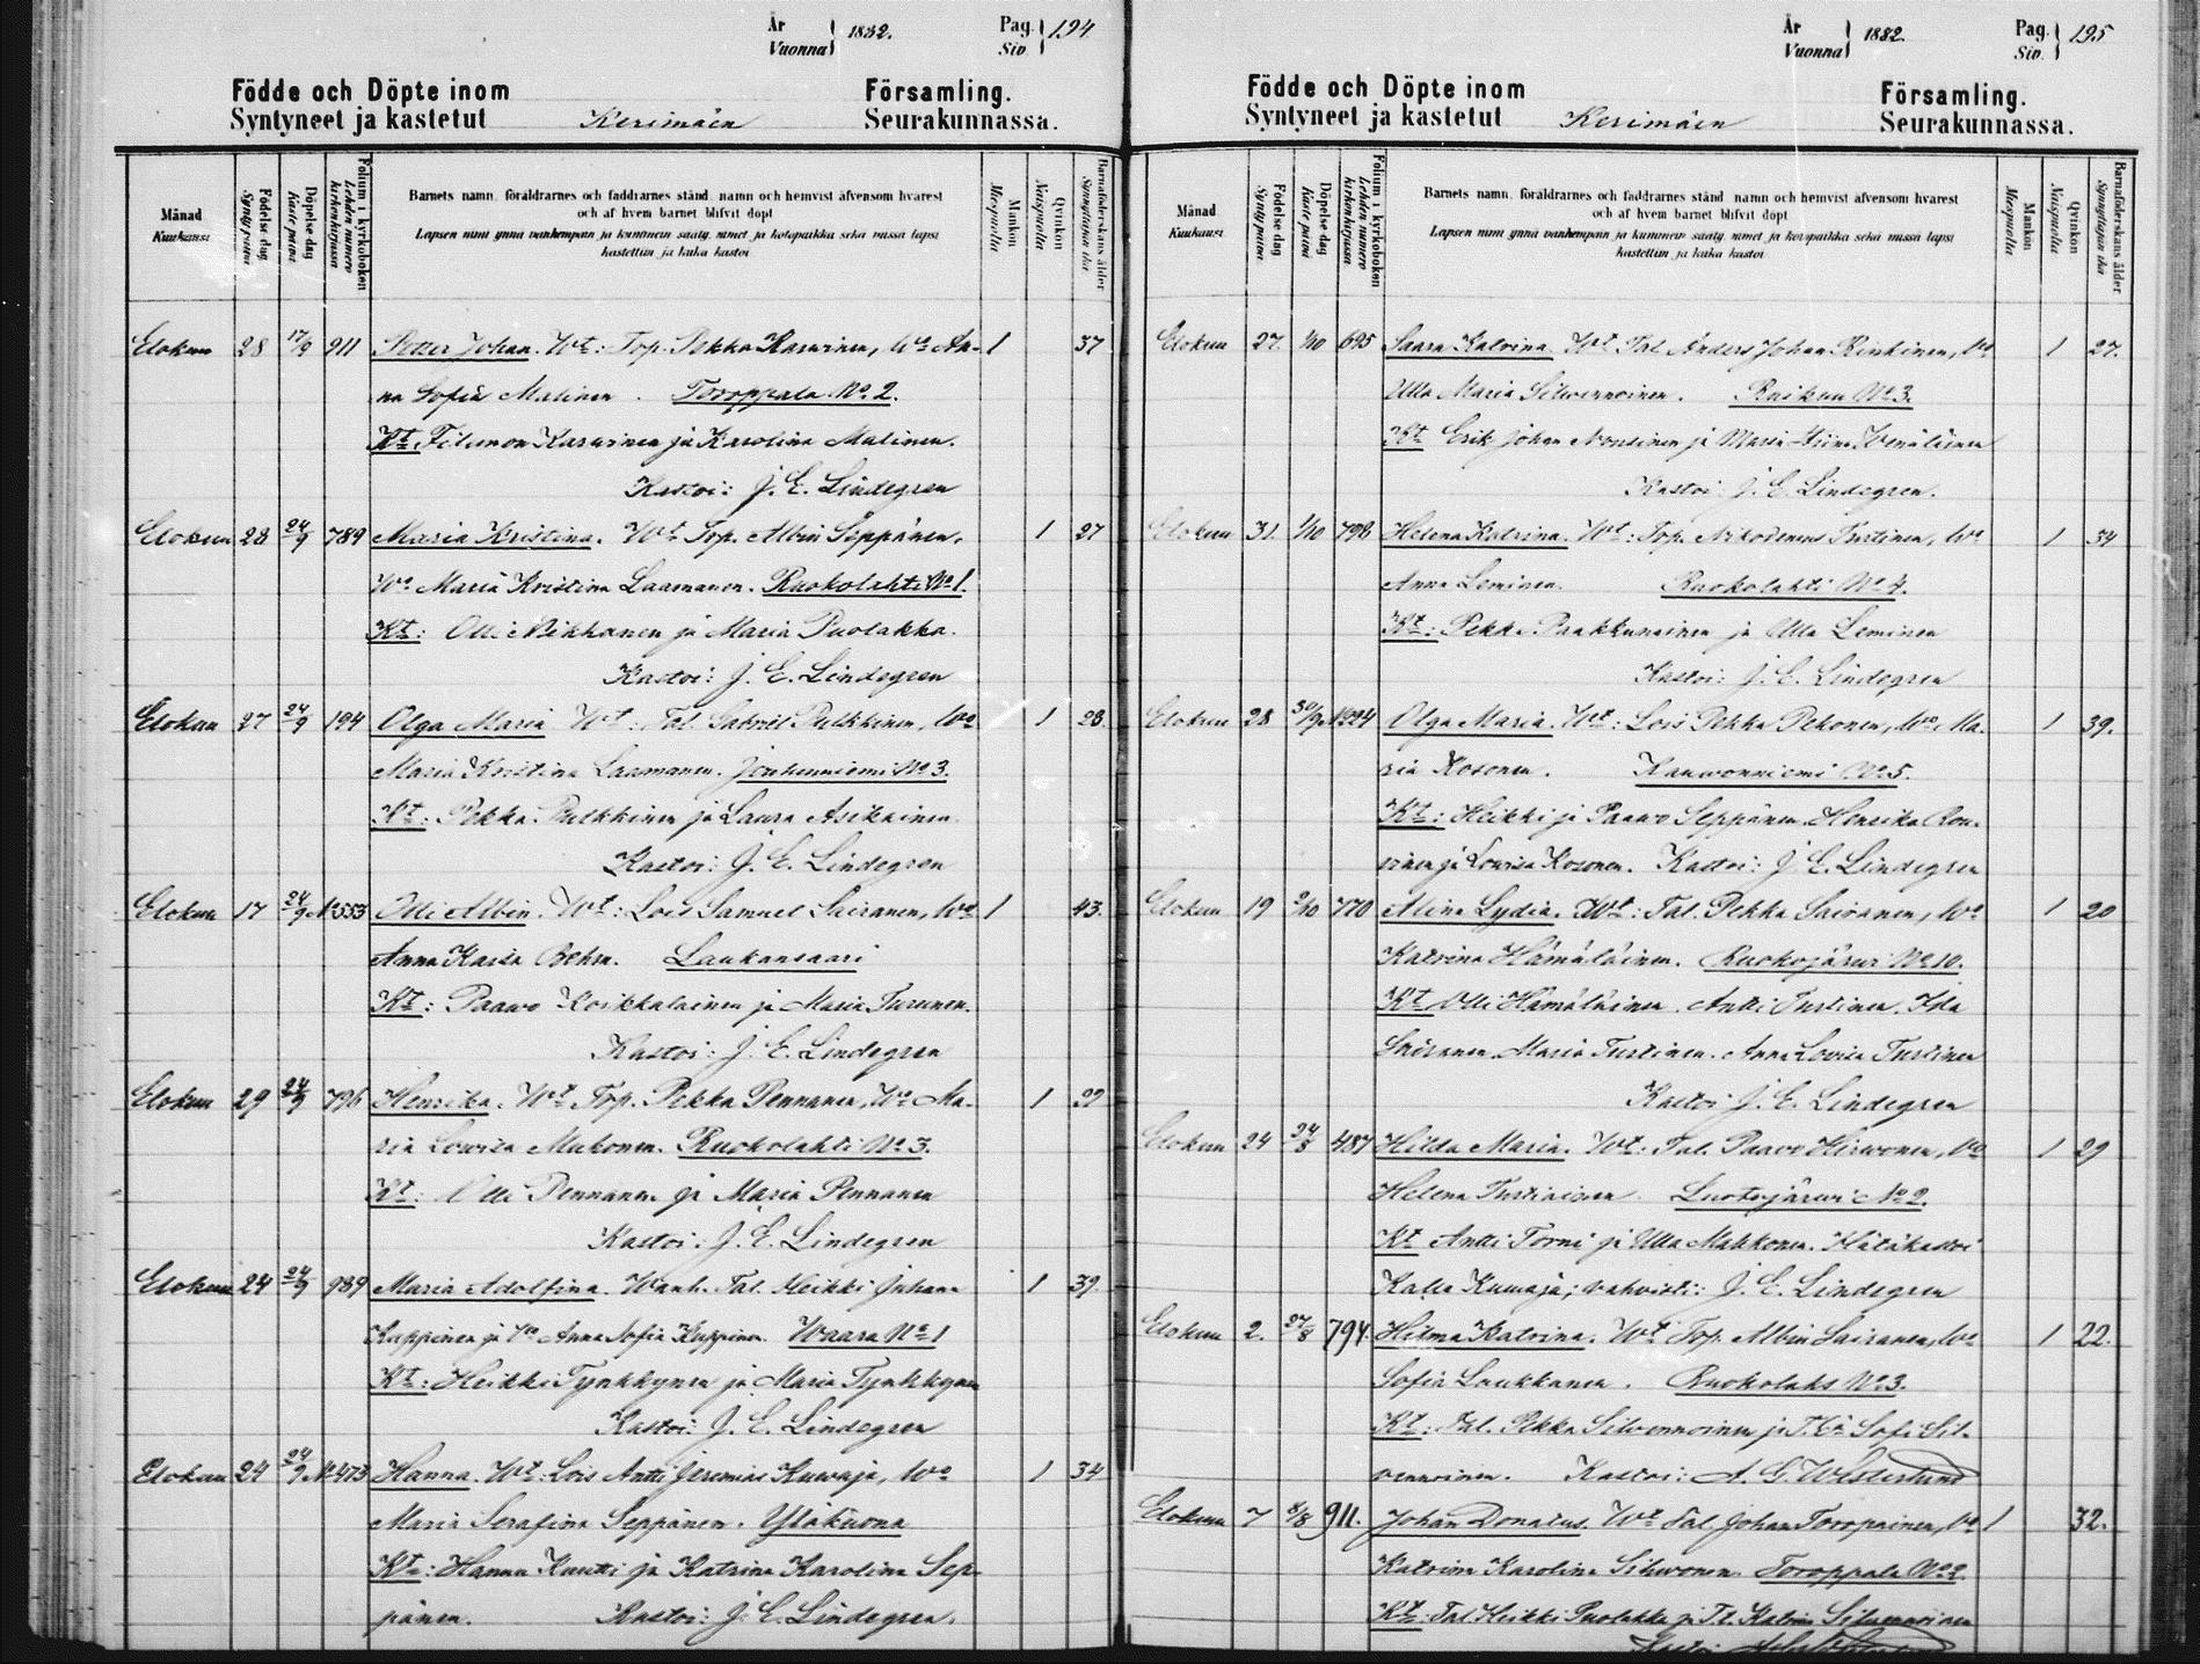 År
Vuonna
1882.
Pag.
Siv.
194
Födde och Döpte inom Församling.
Syntyneet ja kastetut Kerimäen Seurakunnassa.
Månad
Kuukausi
Födelse dag
Synty päivä
Döpelse dag
Kaste päivä
Folium i kyrkoboken
Lehden numero kirkonkirjassa
Barnets namn, föräldrarnes och faddrarnes stånd, namn och hemvist äfvensom hvarest
och af hvem barnet blifvit döpt
Lapsen nimi ynnä vanhempain ja kummein sääty, nimet ja kotopaikka sekä missä lapsi
kastettiin ja kuka kastoi
Mankön
Miespuolta
Qvinkön
Naispuolta
Barnaföderskans ålder
Synnyttäjän ikä
Elokun 28 17/9 911 Petter Johan. Wt: Top. Pekka Karvinen, Wo An- 1 37
na Sofia Malinen. Toroppala No 2.
Kt. Filemon Karvinen ja Karolina Malinen.
Kastoi: J. E. Lindegren
Elokun 28 24/9 789 Maria Kristina. Wt Top. Albin Seppänen, 1 27
Wo Maria Kristina Laamanen. Ruokolahti No 1.
Kt: Olli Mikkonen ja Maria Puolakka.
Kastoi: J. E. Lindegren
Elokun 27 24/9 194 Olga Maria Wt: Tal. Gabriel Pulkkinen, Wo 1 28.
Maria Kristina Laamanen. Jouhenniemi No 3.
Kt: Pekka Pulkkinen ja Laura Asikainen.
Kastoi: J. E. Lindegren
Elokun 17 24/9 N553 Olli Albin. Wt: Lois Samuel Sairanen, Wo 1 43.
Anna Kaisa Behm. Laukansaari
Kt: Paavo Kosikkalainen ja Maria Turunen.
Kastoi: J. E. Lindegren
Elokun 29 24/9 796 Henrika. Wt Top. Pekka Pennanen, Wo Ma- 1 22
ria Lowisa Makonen. Ruokolahti No 3.
Kt: Olli Pennanen ja Maria Pennanen
Kastoi: J. E. Lindegren
Elokun 24 24/9 989 Maria Adolfina. Wanh. Tal. Heikki Juhana 1 39.
Kuppinen ja Vo Anna Sofia Kuppinen. Waara No 1
Kt: Heikki Tynkkynen ja Maria Tynkkynen
Kastoi: J. E. Lindegren
Elokun 24 24/9 N473 Hanna. Wt: Lois Antti Jeremias Kuwaja, Wo 1 34
Maria Serafina Seppänen. Yläkuona
Kt: Hannu Kuutti ja Katrina Karolina Sep-
pänen. Kastoi: J. E. Lindegren.
År
Vuonna
1882.
Pag.
Siv.
195
Födde och Döpte inom Församling.
Syntyneet ja kastetut Kerimäen Seurakunnassa.
Månad
Kuukausi
Födelse dag
Synty päivä
Döpelse dag
Kaste päivä
Folium i kyrkoboken
Lehden numero kirkonkirjassa
Barnets namn, föräldrarnes och faddrarnes stånd, namn och hemvist äfvensom hvarest
och af hvem barnet blifvit döpt
Lapsen nimi ynnä vanhempain ja kummein sääty, nimet ja kotopaikka sekä missä lapsi
kastettiin ja kuka kastoi
Mankön
Miespuolta
Qvinkön
Naispuolta
Barnaföderskans ålder
Synnyttäjän ikä
Elokun 27. 1/10 695 Saara Katrina. Wt Tal. Anders Johan Rinkinen, Wo 1 27.
Ulla Maria Silvennoinen. Raikuu No 3.
Kt Erik Johan Nousinen ja Maria Stiina Wenäläinen
Kastoi: J. E. Lindegren.
Elokun 31. 1/10 798 Helena Katrina. Wt: Top. Nikodemus Turtinen, Wo 1 34
Anna Leminen. Ruokolahti No 4.
Kt: Pekka Paakkunainen ja Ulla Leminen
Kastoi: J. E. Lindegren
Elokun 28 30/9 N224 Olga Maria. Wt: Lois Pekka Pekonen, Wo Ma- 1 39.
ria Kosonen. Kauvonniemi No 5.
Kt: Heikki ja Paavo Seppänen Henrika Rou-
vinen ja Lowisa Kosonen. Kastoi: J. E. Lindegren
Elokun 19 2/10 770 Alina Lydia. Wt: Tal. Pekka Sairanen, Wo 1 20
Katrina Hämäläinen. Ruokojärvi No 10.
Kt Olli Hämäläinen. Antti Turtinen. Ida
Sairanen. Maria Turtinen. Anna Lowisa Turtinen
Kastoi: J. E. Lindegren
Elokun 24 24/8 487 Hilda Maria. Wt: Tal. Paavo Hirvonen, Vo 1 29
Helena Turtiainen. Luotojärvi No 2.
Kt Antti Torni ja Ulla Makkonen. Hätäkastoi
Kalle Kuwaja; vahvisti: J. E. Lindegren
Elokun 2. 27/8 794. Hilma Katrina. Wt Top. Albin Sairanen, Wo 1 22.
Sofia Laukkanen. Ruokolaks No 3.
Kt: Tal. Pekka Silvennoinen ja T. Sofi Sil-
vennoinen. Kastoi: A. G. Westerlund
Elokun 7 8/8 911. Johan Donatus. Wt Tal. Johan Toropainen, Vo 1 32.
Katrina Karolina Silvonen. Toroppala No 2
Kt: Tal. Heikki Puolakka ja T. t. Katrina Silvennoinen
Kastoi: